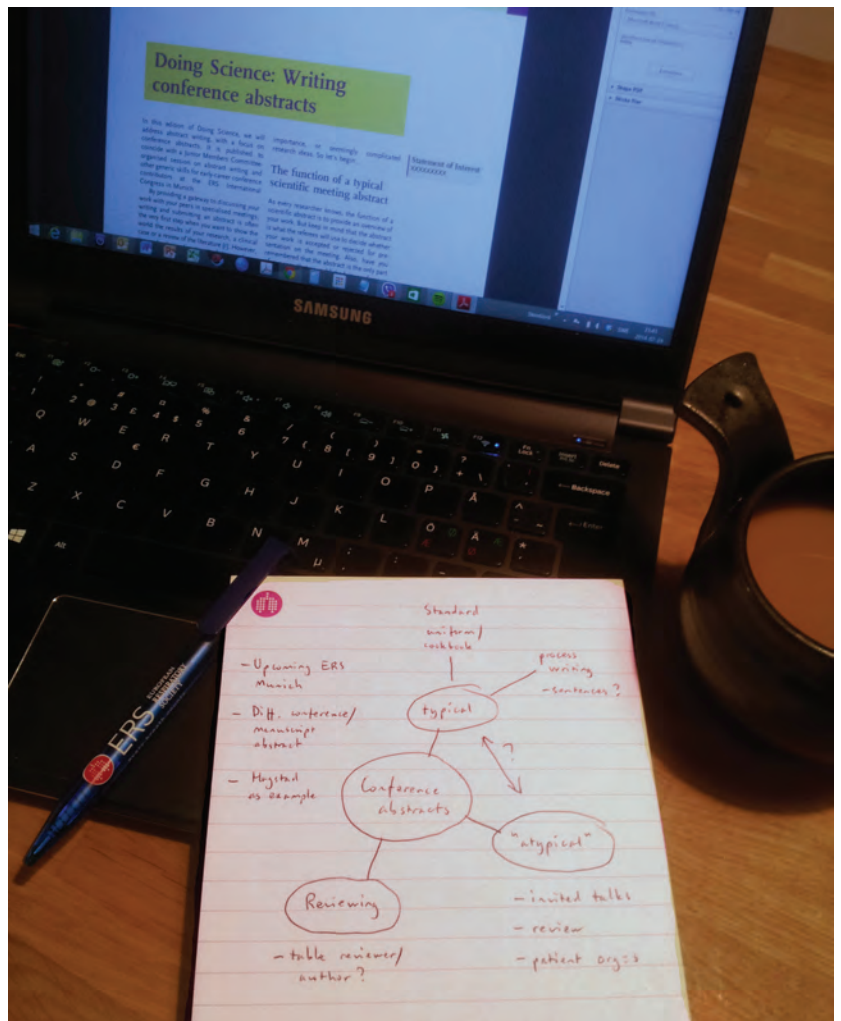 Doing Science: Writing
conference abstracts
In this edition of Doing Science, we will
address abstract writing, with a focus on
conference abstracts. It is published to
coincide with a Junior Members Committee
organised session on abstract writing and
other generic skills for early-career conference
contributors, at the ERS International
Congress in Munich.
By providing a gateway to discussing your
work with your peers in specialised meetings,
writing and submitting an abstract is often
the very first step when you want to show the
world the results of your research, a clinical
case or a review of the literature [1]. However,
importance, to seemingly complicated
research ideas. So let's begin.
The function of a typical
scientific meeting abstract
As every researcher knows, the function of a
scientific abstract is to provide an overview of
your work. But keep in mind that the abstract
is what the referees will use to decide whether
your work is accepted or rejected for pre-
sentation on the meeting. Also, have you
remembered that the abstract is the only part
Statement of Interest
XXXXXXXXX
SAMSUNG
1 2 @ 3 £ 4 5 % 6 & 7 / { 8 ( [ 9 ) ] 0 = } + ? \
Backspace
Q W E € R T Y U I O P Å
Enter
A S D F G H J K L Ö Ä
Z X C V B N M µ
Alt
Fn
Lock
Insert
Delete
ERS
EUROPEAN
RESPIRATORY
SOCIETY
Standard
uniform/
cookbook
process
writing
- sentences?
- Upcoming ERS
Munich
typical
- Diff. conference/
manuscript
abstract
?
as example
Conference
abstracts
"atypical"
Reviewing
- invited talks
- review
- patient org:s
- table reviewer/
author?